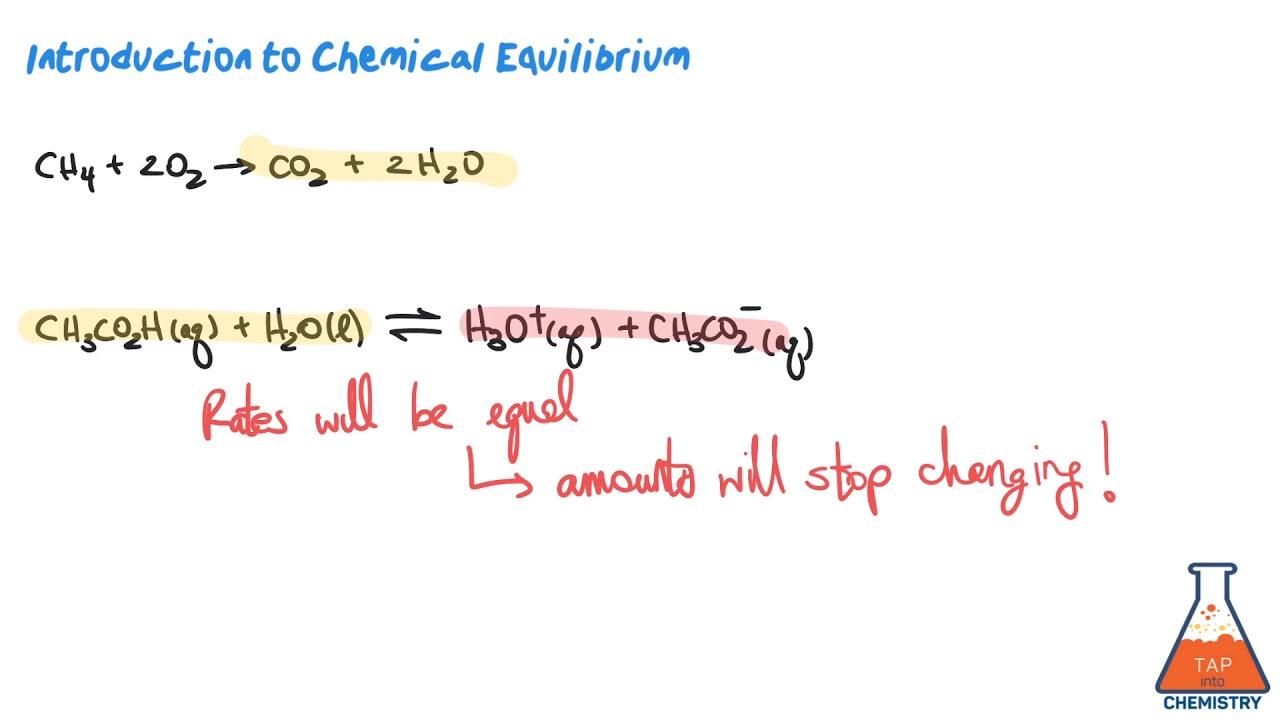 Introduction to Chemical Equilibrium
CH₄ + 2O₂ → CO₂ + 2H₂O
CH₃CO₂H(aq) + H₂O(l) ⇌ H₃O⁺(aq) + CH₃CO₂⁻(aq)
Rates will be equal
↳ amounts will stop changing!
TAP
into
CHEMISTRY